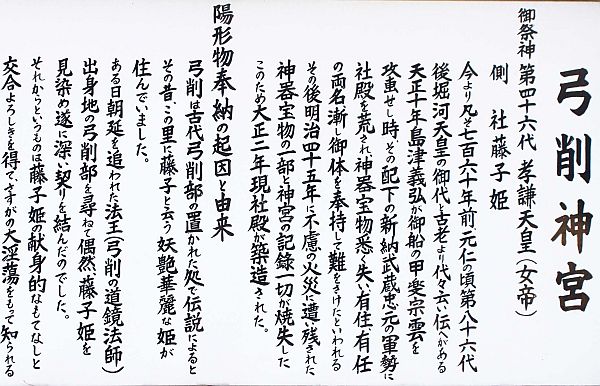 弓削神宮
御祭神 第四十六代 孝謙天皇(女帝)
側 社藤子姫
今より凡そ七百六十年前元仁の頃第八十六代
後堀河天皇の御代古老より代々云い伝がある
天正十年島津義弘が御船の甲斐宗雲を
攻重せし時その配下の新納武蔵忠元の軍勢に
社殿を荒され神器宝物悉く失い有住有任
の両名漸し御体を奉持して難をさけたといわれる
その後明治四十五年に不慮の火災に遭い残された
神器宝物の一部と神宮の記録一切が焼失した
このため大正二年現社殿が築造された。
陽形物奉納の起因と由来
弓削は古代弓削部の置かれた処で伝説によると
その昔この里に藤子と云う妖艶華麗な姫が
住んでいました。
ある日朝延を追われた法王(弓削の道鏡法師)
出身地の弓削部を尋ねて偶然、藤子姫を
見染め遂に深い契りを結んだのでした。
それからというものは藤子姫の献身的なもてなしと
交合よろしきを得てさすがの大淫蕩をもって知られる